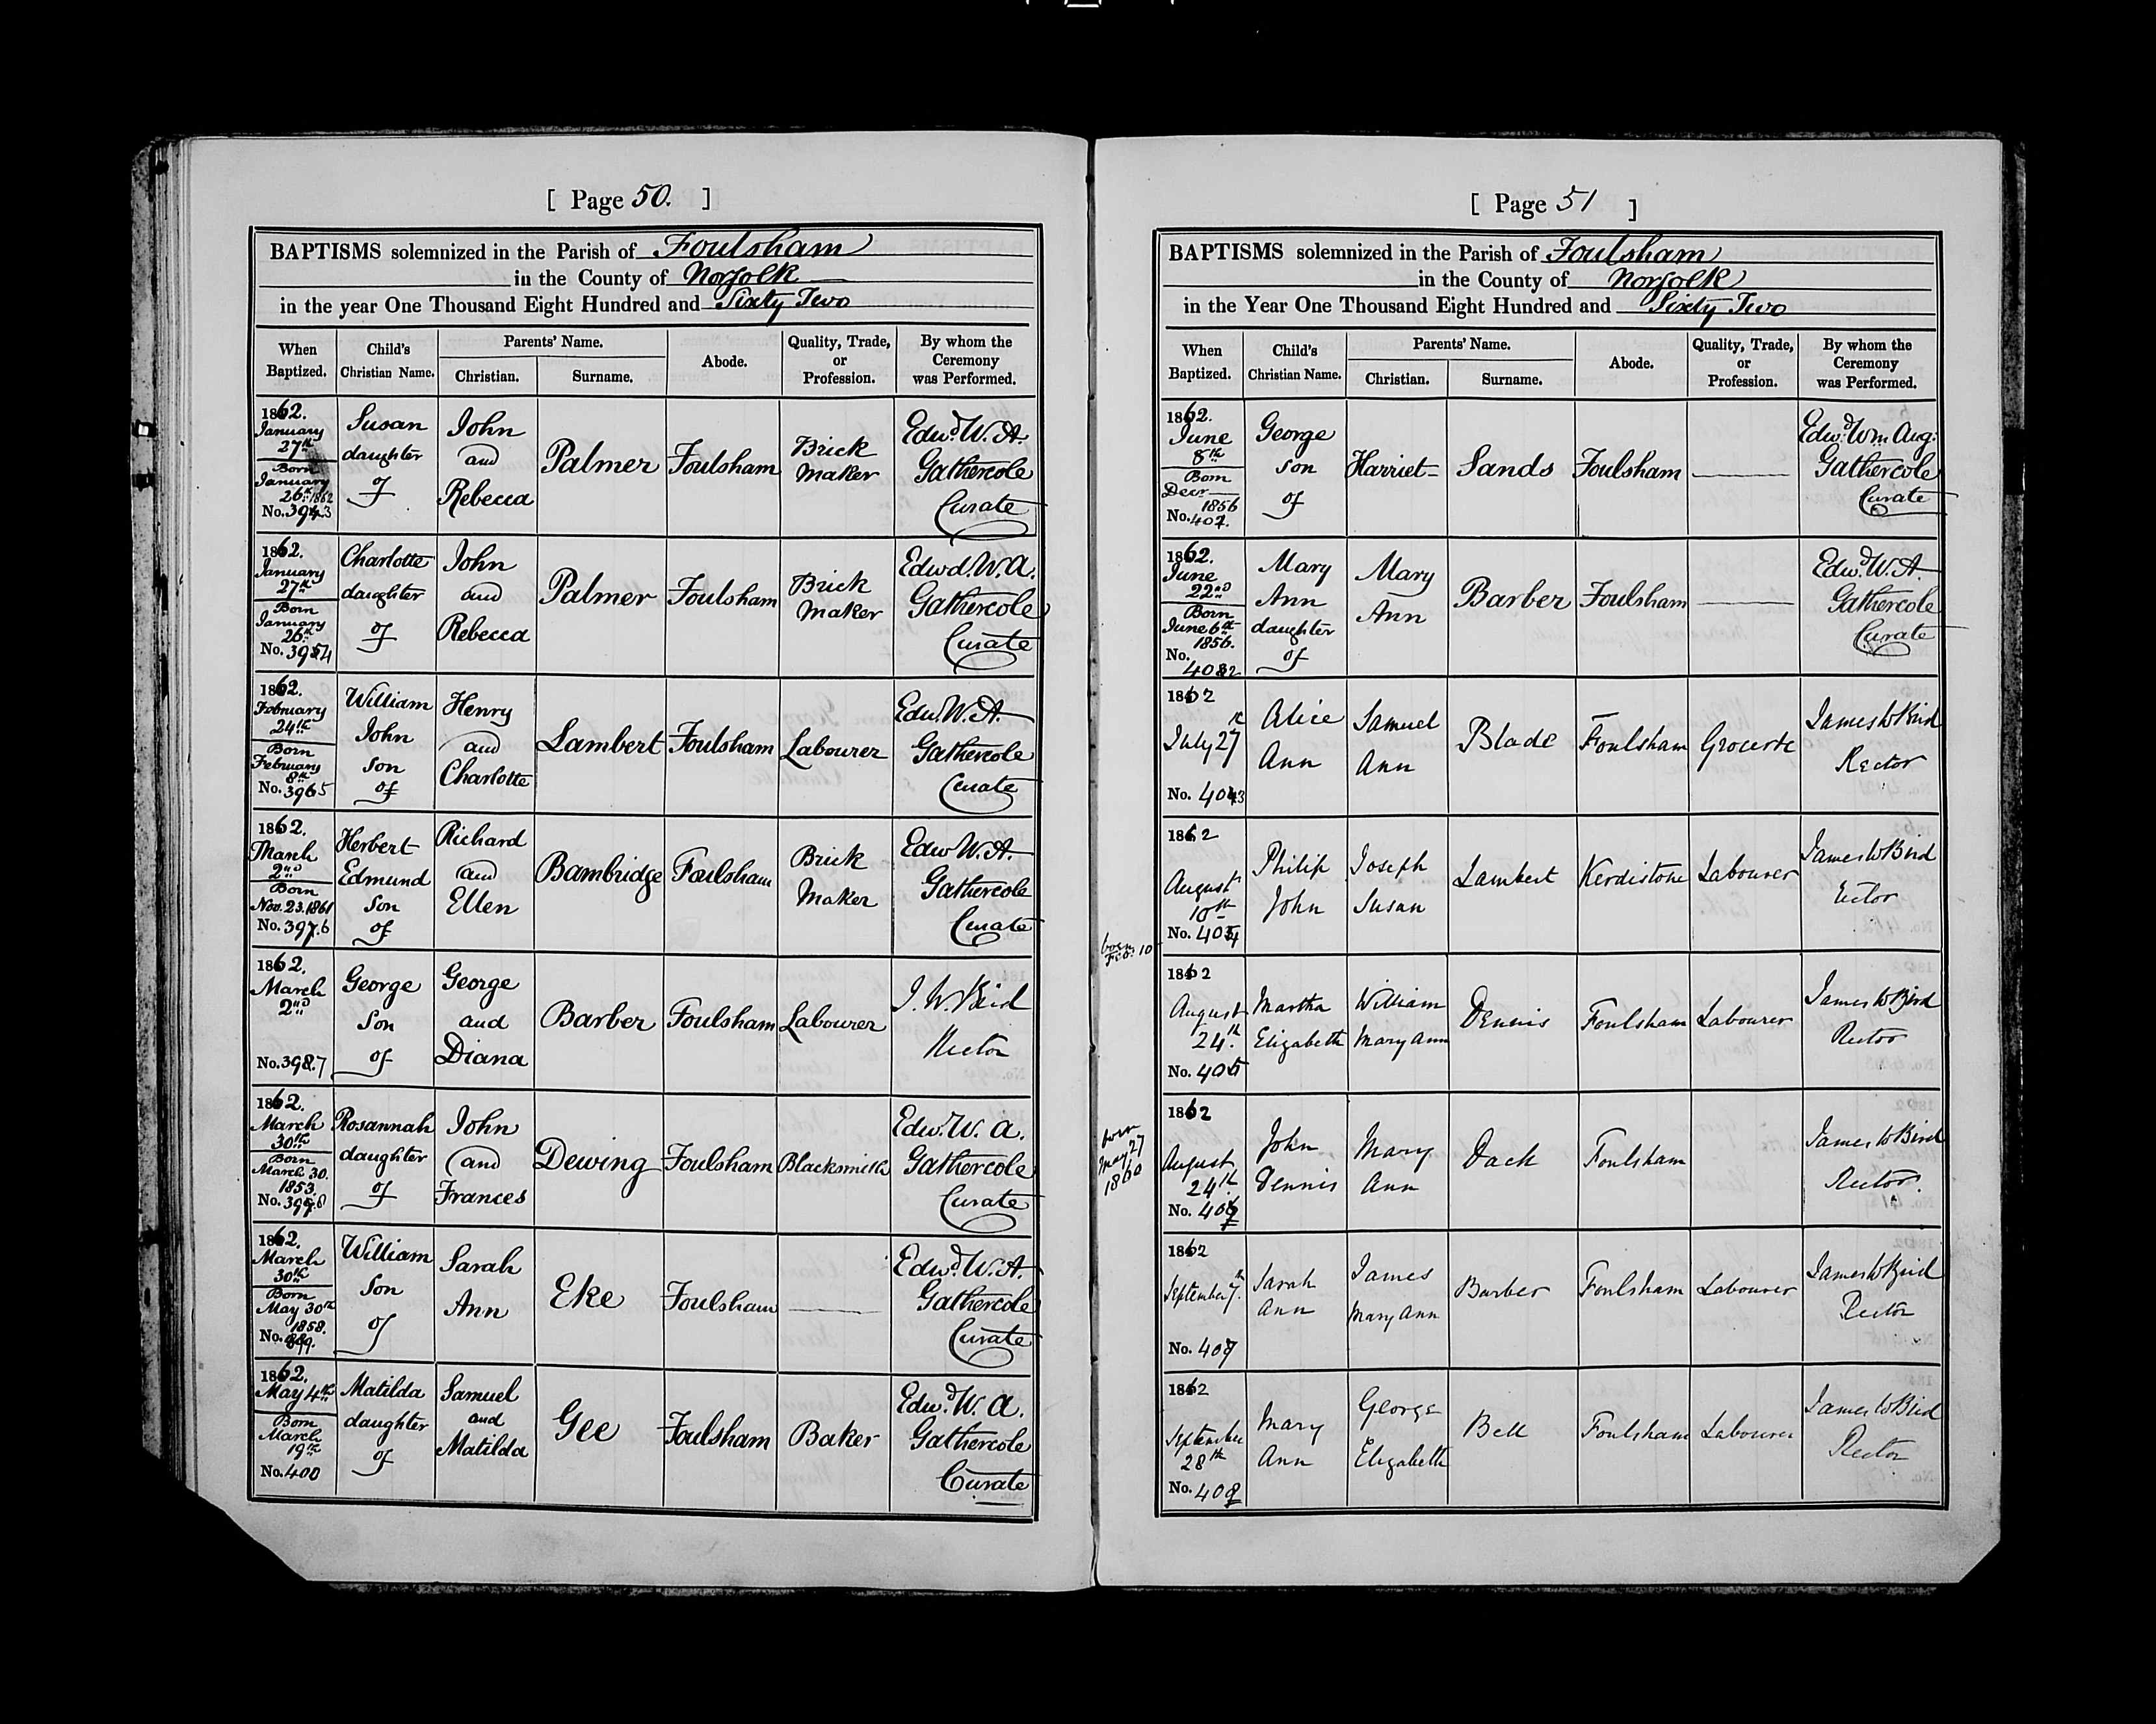 [ Page 50. ]
BAPTISMS solemnized in the Parish of Foulsham
in the County of Norfolk
in the year One Thousand Eight Hundred and Sixty Two
When Baptized. Child's Christian Name. Parents' Name. Christian. Surname. Abode. Quality, Trade, or Profession. By whom the Ceremony was Performed.
1862. January 27th Born January 26th 1862 No. 393 Susan daughter of John and Rebecca Palmer Foulsham Brick Maker Edwd. W. A. Gathercole Curate
1862. January 27th Born January 26th No. 394 Charlotte daughter of John and Rebecca Palmer Foulsham Brick Maker Edwd. W. A. Gathercole Curate
1862. February 24th Born February 8th No. 395 William John son of Henry and Charlotte Lambert Foulsham Labourer Edw. W. A. Gathercole Curate
1862. March 2nd Born Nov. 23. 1861 No. 396 Herbert Edmund Son of Richard and Ellen Bambridge Foulsham Brick Maker Edw W. A. Gathercole Curate
1862. March 2nd No. 397 George Son of George and Diana Barber Foulsham Labourer J. W. Bird Rector
1862. March 30th Born March 30. 1853. No. 398 Rosannah daughter of John and Frances Dewing Foulsham Blacksmith Edw. W. A. Gathercole Curate
1862. March 30th Born May 30th 1858. No. 399. William Son of Sarah Ann Eke Foulsham Edwd. W. A. Gathercole Curate
1862. May 4th Born March 19th No. 400 Matilda daughter of Samuel and Matilda Gee Foulsham Baker Edwd. W. A. Gathercole Curate
[ Page 51 ]
BAPTISMS solemnized in the Parish of Foulsham
in the County of Norfolk
in the Year One Thousand Eight Hundred and Sixty Two
When Baptized. Child's Christian Name. Parents' Name. Christian. Surname. Abode. Quality, Trade, or Profession. By whom the Ceremony was Performed.
1862. June 8th Born Decr 1856 No. George son of Harriet Sands Foulsham Edwd. Wm. Aug: Gathercole Curate
1862. June 22nd Born June 6th 1856. No. 402 Mary Ann daughter of Mary Ann Barber Foulsham Edwd. W. A. Gathercole Curate
1862 July 27th No. 403 Alice Ann Samuel Ann Blade Foulsham James W Bird Rector
1862 August 10th No. 404 Philip John Joseph Susan Lambert Kerdistone Labourer James W Bird
born Feb: 10
1862 August 24th No. 405 Martha Elizabeth William Mary Ann Dennis Foulsham Labourer James W Bird Rector
born May 27 1860
1862 August 24th No. John Dennis Mary Ann Dack Foulsham James W Bird Rector
1862 September 7th No. 407 Sarah Ann James Mary Ann Barber Foulsham Labourer James W Bird Rector
1862 September 28th No. 408 Mary Ann George Elizabeth Bell Foulsham Labourer James W Bird Rector